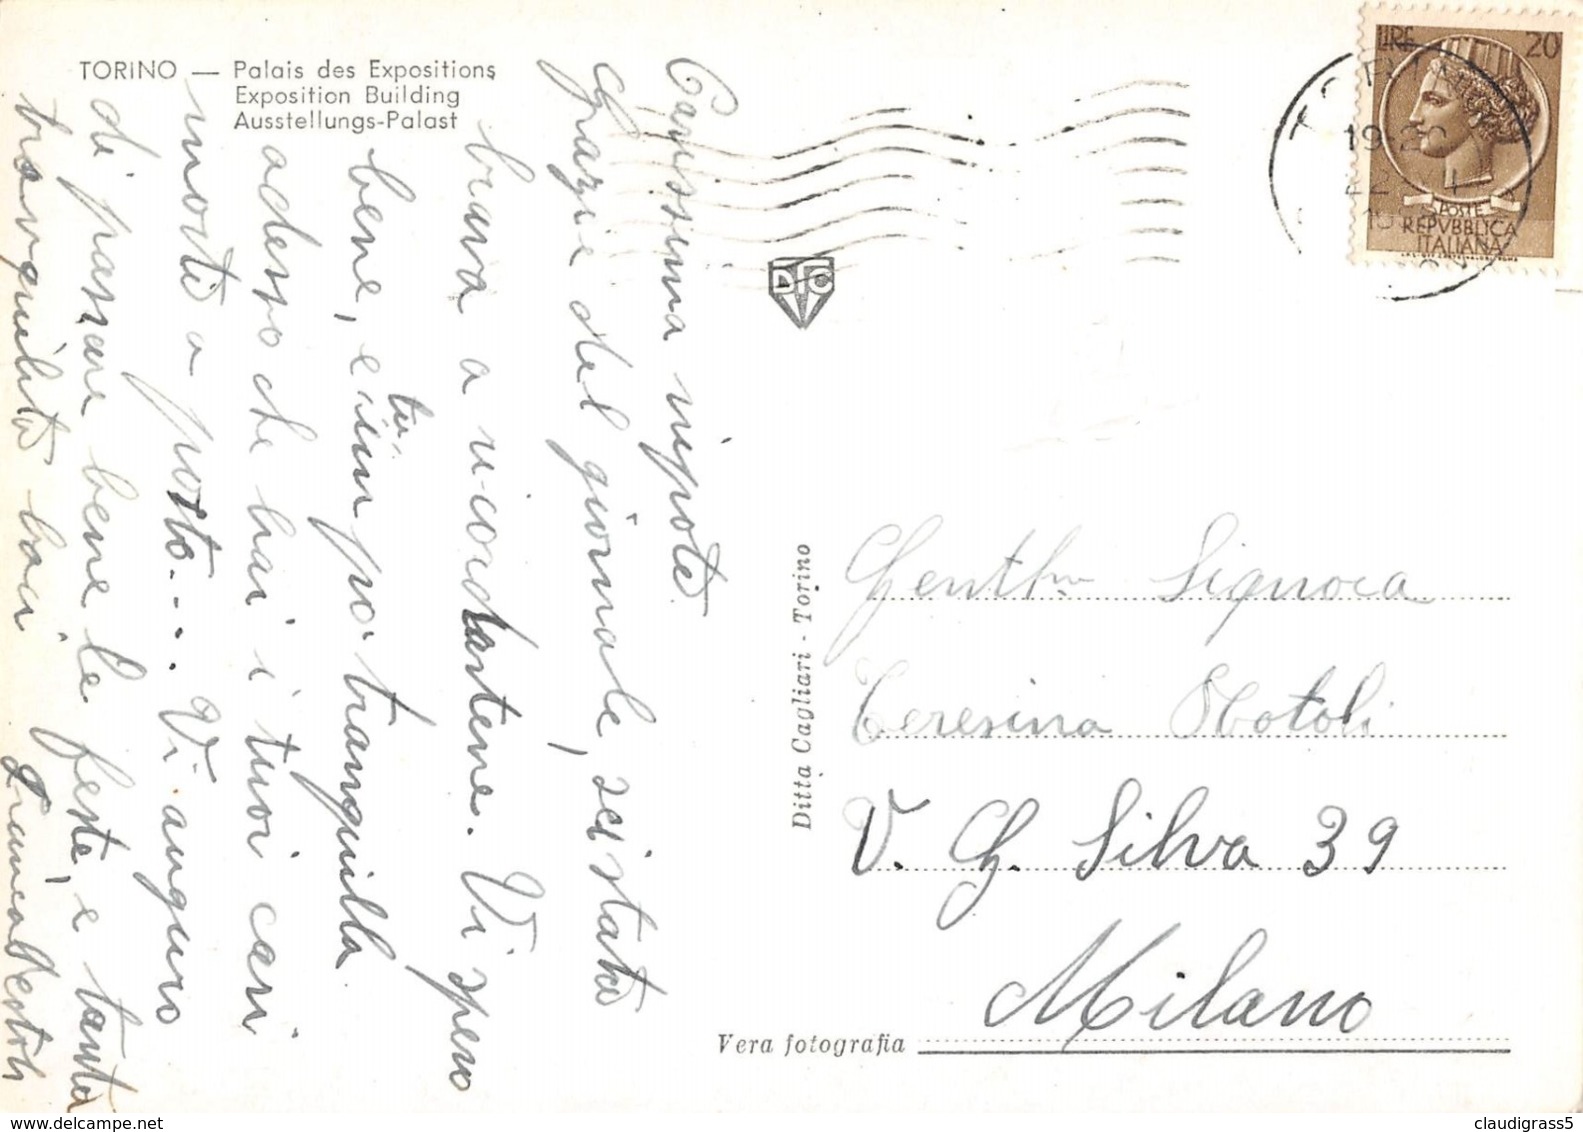 TORINO — Palais des Expositions
Exposition Building
Ausstellungs-Palast
Carissima nipote
Grazie del giornale, sei stata
brava a ricordartene. Vi spero
bene, e tu
un po' tranquilla
adesso che hai i tuoi cari
morti a posto... Vi auguro
di passare bene le feste, e tanta
tranquillità baci
Ditta Cagliari - Torino
Vera fotografia
DFC
LIRE 20
POSTE
REPVBBLICA
ITALIANA
19-20
22
Signora
Teresina
V. G. Silva 39
Milano
delcampe.net
claudigrass5